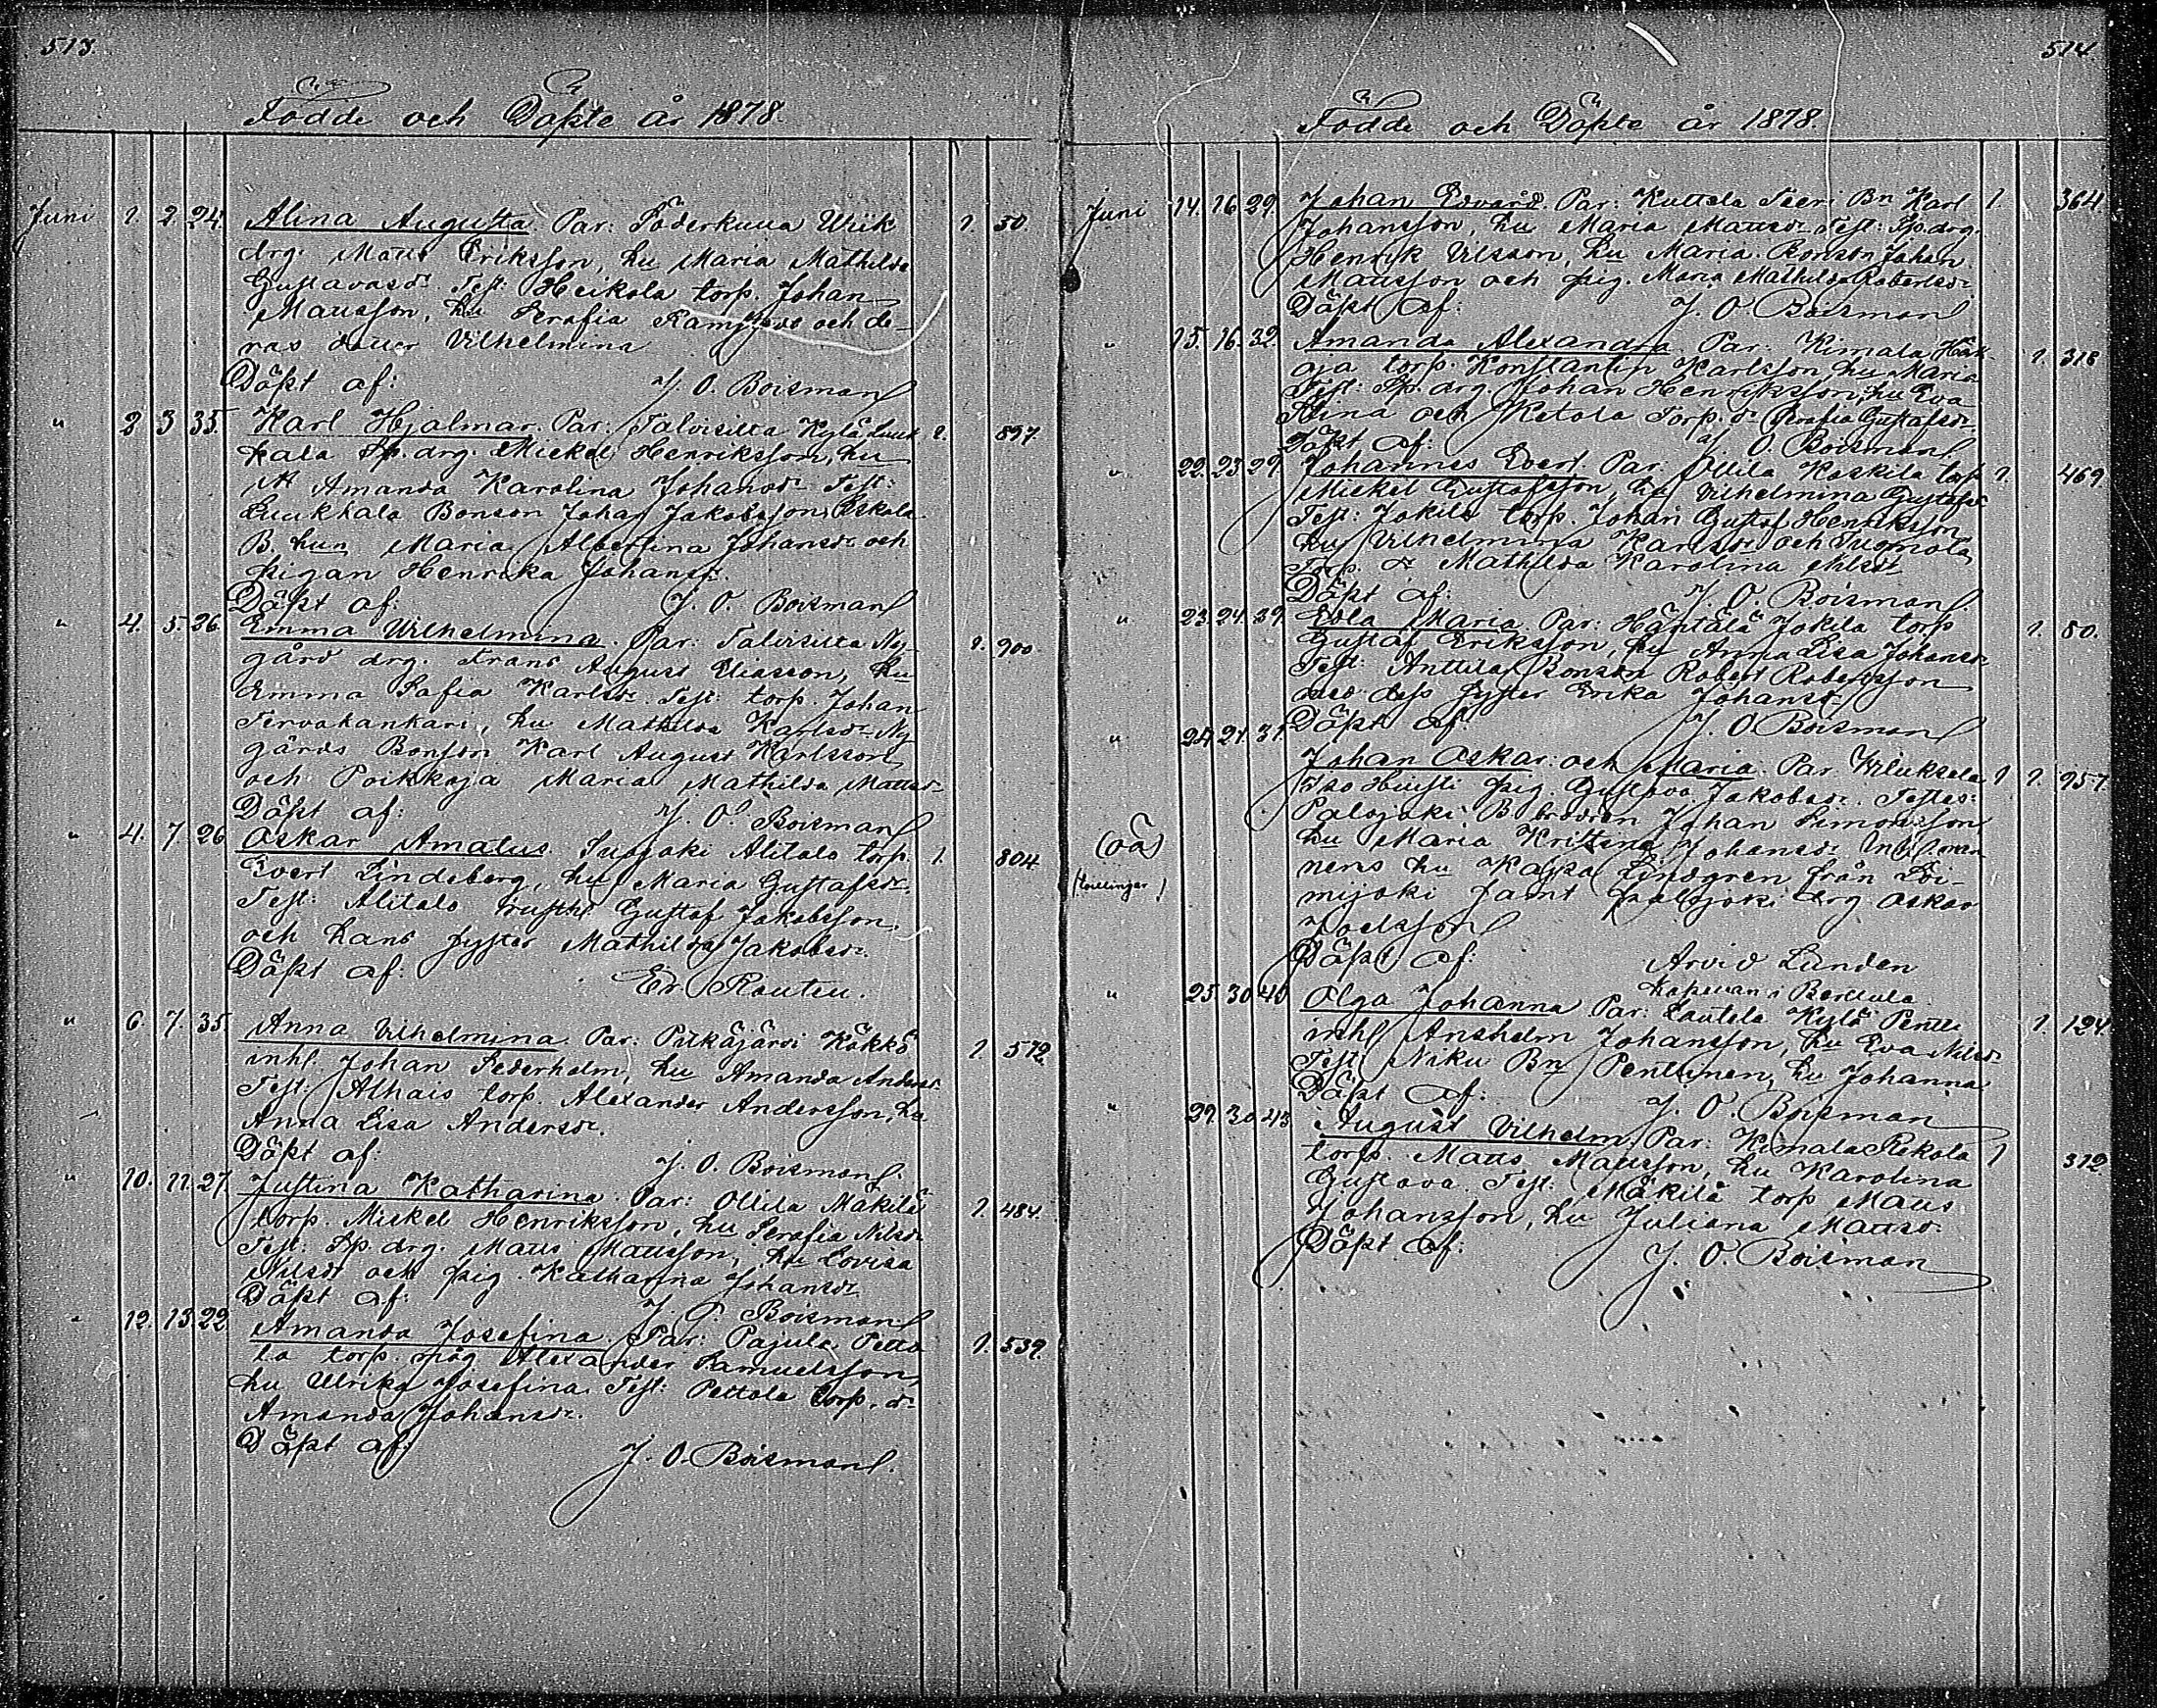 513.
Födde och Döpte år 1878.
Juni 1. 2. 24. Alina Augusta. Par: Söderkulla Wiik 1. 50.
drg. Matts Eriksson, hu Maria Mathilda
Gustavasdr. Test: Heikola torp. Johan
Mattsson, hu Serafia och de-
ras dotter Vilhelmina
Döpt af: J. O. Boisman
" 2 3 35. Karl Hjalmar. Par: Talvisilta Kylä Luuk 1. 897.
kala Sp. drg. Mickel Henriksson, hu
Amanda Karolina Johansdr Test:
Luukkala Bonson Johan Jakobsson, Eskola
B. hun Maria Albertina Johansdr och
pigan Henrika Johansdr.
Döpt af: J. O. Boisman
" 4. 5. 26. Emma Wilhelmina. Par: Talvisilta Ny- 1. 900.
gård drg. Frans August Eliasson, hu
Emma Safia Karlsdr. Test: torp. Johan
Tervakankari, hu Mathilda Karlsdr Ny
gårds Bonson Karl August Karlsson
och Poikkoja Maria Mathilda Mattsdr
Döpt af: J. O. Boisman
" 4. 7. 26 Oskar Amatus. Suojoki Alitalo torp. 1. 804.
Evert Lindeberg, hu Maria Gustafsdr.
Test: Alitalo rusth. Gustaf Jakobsson
och hans syster Mathilda Jakobsdr.
Döpt af: Ed. Rautell.
" 6. 7. 35. Anna Vilhelmina. Par: Pitkäjärvi Kökkö 1. 572.
inhl. Johan Sederholm, hu Amanda Andersdr
Test: Alhais torp. Alexander Andersson, hu
Anna Lisa Andersdr.
Döpt af: J. O. Boisman.
" 10. 11. 27. Justina Katharina. Par: Ollila Mäkilä 1. 484.
torp. Mickel Henriksson, hu Serafia Nilsdr
Test: Sp. drg. Matts Mattsson, hu Lovisa
Nilsdr och pig. Katharina Johansdr
Döpt af: J. O. Boisman
" 12. 13. 22. Amanda Josefina. Par: Pajula Petto 1. 539.
la torp. måg Alexander Samuelsson,
hu Ulrika Josefina. Test: Pettola torp. dr
Amanda Johansdr.
Döpt af: J. O. Boisman.
514.
Födde och Döpte år 1878.
Juni 14. 16. 29. Johan Edvard. Par: Kuttola Seeri Bn Karl 1. 364.
Johansson, hu Maria Mattsdr. Test: Sp. drg.
Henrik Ulsson, hu Maria. Bonson Johan
Mattsson och pig. Maria Mathilda Robertsdr
Döpt af: J. O. Boisman
" 15. 16. 32. Amanda Alexandra. Par: Kimala 1. 318
oja torp. Konstantin Karlsson, hu Maria
Test: Sp. drg. Johan Henriksson, hu Eva
Stina och Ketola Torp. dr Serafia Gustafsdr
Döpt af: J. O. Boisman
" 22. 23. 29. Johannes Evert. Par: Ollila Koskila torp 1. 469
Mickel Gustafsson, hu Vilhelmina Gustafsdr
Test: Jokila torp. Johan Gustaf Henriksson
hu Vilhelmina Karlsdr och Suomola
Torp. dr Mathilda Karolina Nilsdr
Döpt af: J. O. Boisman.
" 23. 24. 39. Edla Maria. Par: Häntälä Jokila torp 1. 80.
Gustaf Eriksson, hu Anna Lisa Johansdr
Test: Anttila Bonson Robert Robertsson
med dess syster Erika Johansdr
Döpt af: J. O. Boisman
" 24. 27. 31. Johan Oskar: och Maria. Par: Viluksela 1 1. 957.
Iso Huisti pig. Gustava Jakobsdr. Testes:
(oä) Palojoki B. brodren Johan Simonsson
hu Maria Kristina Johansdr. Inh. man
(tvillingar) nens hu Kajsa Lindgren från Loi-
mijoki samt Palojoki drg Oskar
Joelsson
Döpt af: Arvid Lunden
Kapellan i Berttula
" 25. 30. 40. Olga Johanna. Par: Lautela Kylä Pentti 1. 124.
inhl. Anshelm Johansson, hu Eva Nilsdr
Test: Niku Bn Penttinen, hu Johanna
Döpt af: J. O. Boisman
" 29. 30. 43. August Vilhelm. Par: Kimala Rekola 1 312.
torp. Matts Mattsson, hu Karolina
Gustava. Test: Mäkilä torp Matts
Johansson, hu Juliana Mattsdr.
Döpt af: J. O. Boisman